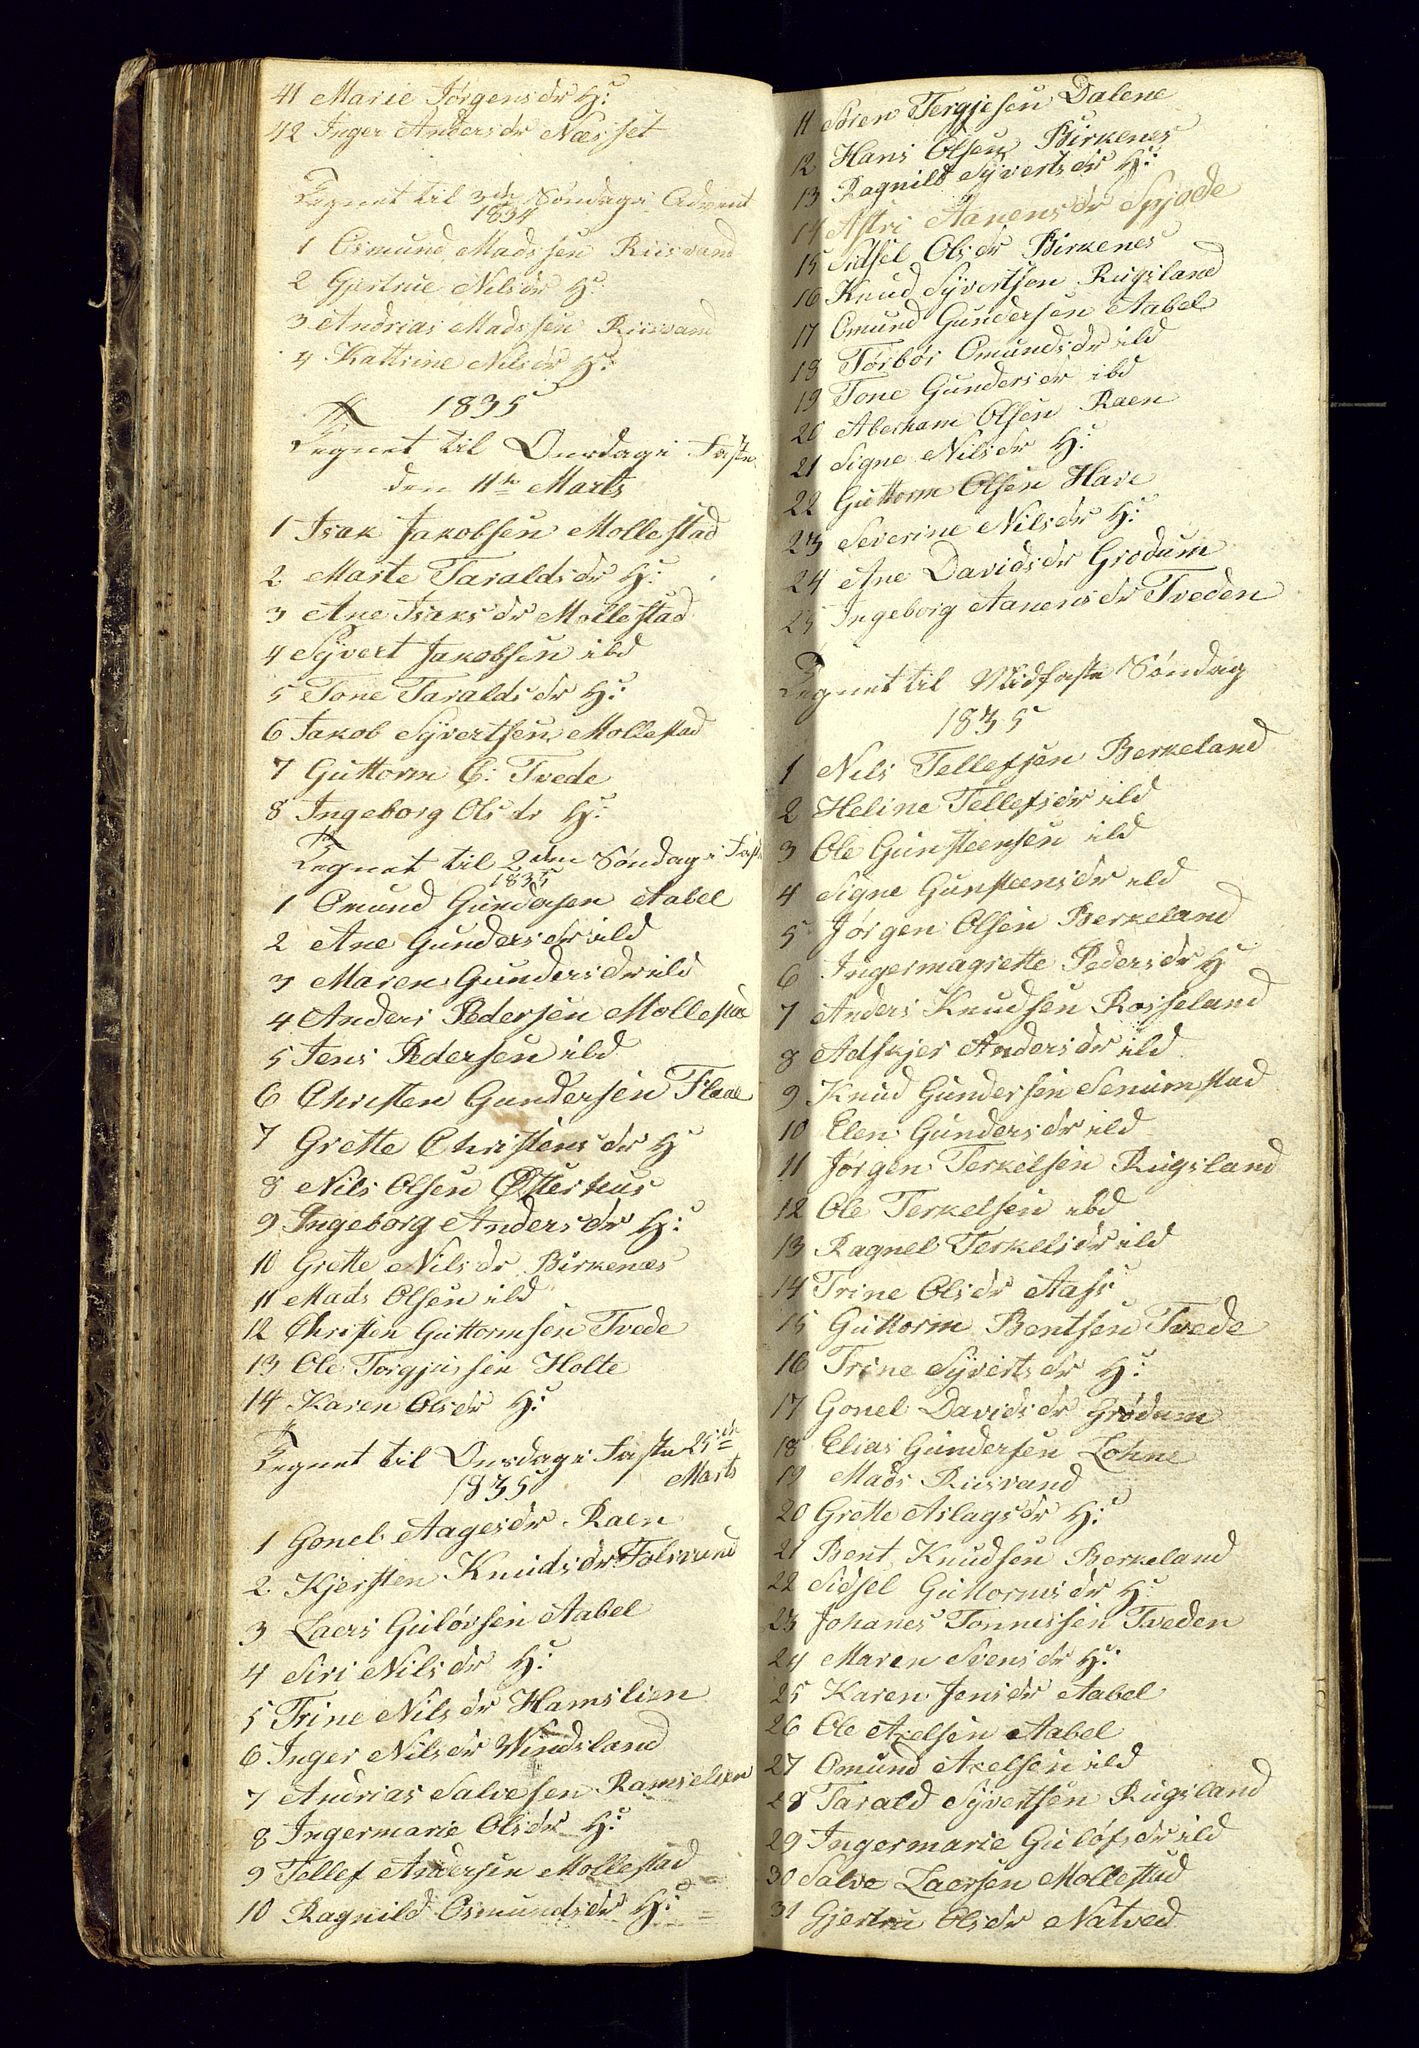 41 Marie Jørgensdr H:
42 Inger Andersdr Næsset
Tegnet til 3de Søndag i Advent
1834
1 Osmund Madssen Riisvand
2 Gjertrue Nilsdr H:
3 Andrias Madssen Riisvand
4 Kathrine Nilsdr H:
1835
Tegnet til Onsdag i Faste
den 11te Marts
1 Isak Jakobsen Mollestad
2 Marte Taraldsdr H:
3 Ane Isaksdr Mollestad
4 Syvert Jakobsen ibd
5 Tone Taraldsdr H:
6 Jakob Syvertsen Mollestad
7 Guttorm C: Tvede
8 Ingeborg Olsdr H:
Tegnet til 2den Søndag i Fast
1835
1 Omund Gundersen Aabel
2 Ane Gundersdr ibd
3 Maren Gundersdr ibd
4 Anders Pedersen Mollestad
5 Jens Pedersen ibd
6 Christen Gundersen Flaae
7 Grette Christensdr H
8 Nils Olsen Østerhus
9 Ingeborg Andersdr H:
10 Grette Nilsdr Birkenes
11 Mads Olsen ibd
12 Christen Guttormsen Tvede
13 Ole Torgjussen Holte
14 Karen Olsdr H:
Tegnet til Onsdag i Faste 25de
1835 Marts
1 Gonel Aagesdr Raen
2 Kjersten Knudsdr Tolsrund
3 Laers Guløvsen Aabel
4 Siri Nilsdr H:
5 Trine Nilsdr Hamslien
6 Inger Nilsdr Windsland
7 Andrias Salvesen Ramselien
8 Ingermarie Olsdr H:
9 Tellef Andersen Mollestad
10 Ragnild Osmundsdr H:
11 Søren Tergjesen Dalene
12 Hans Olsen Birkenes
13 Ragnild Syvertsdr H:
14 Astri Aanensdr Spjøde
15 Sidsel Olsdr Birkenes
16 Knud Syvertsen Rugsland
17 Omund Gundersen Aabel
18 Torbor Omundsdr ibd
19 Tone Gundersdr ibd
20 Abraham Olsen Raen
21 Signe Nilsdr H:
22 Guttorm Olsen Have
23 Severine Nilsdr H:
24 Ane Davidsdr Grødum
25 Ingeborg Aanensdr Tveden
Tegnet til Midfaste Søndag
1835
1 Nils Tellefsen Berkeland
2 Heline Tellefsdr ibd
3 Ole Gunsteensen ibd
4 Signe Gunsteensdr ibd
5 Jørgen Olsen Berkeland
6 Ingermagrette Pedersdr H
7 Anders Knudsen Rosseland
8 Adskjer Andersdr ibd
9 Knud Gundersen Senumstad
10 Elen Gundersdr ibd
11 Jørgen Terkelsen Rugsland
12 Ole Terkelsen ibd
13 Ragnel Terkelsdr ibd
14 Trine Olsdr Aass
15 Guttorm Bentsen Tvede
16 Trine Syvertsdr H:
17 Gonel Davidsdr Grødum
18 Elias Gundersen Lohne
19 Mads Riisvand
20 Grette Aslagsdr H:
21 Bent Knudsen Berkeland
22 Sidsel Guttormsdr H:
23 Johanes Tonnessen Tveden
24 Maren Svensdr H:
25 Karen Jensdr Aabel
26 Ole Axelsen Aabel
27 Omund Axelsen ibd
28 Tarald Syvertsen Rugsland
29 Ingermarie Guløfsdr ibd
30 Salve Laersen Mollestad
31 Gjertru Olsdr Natved